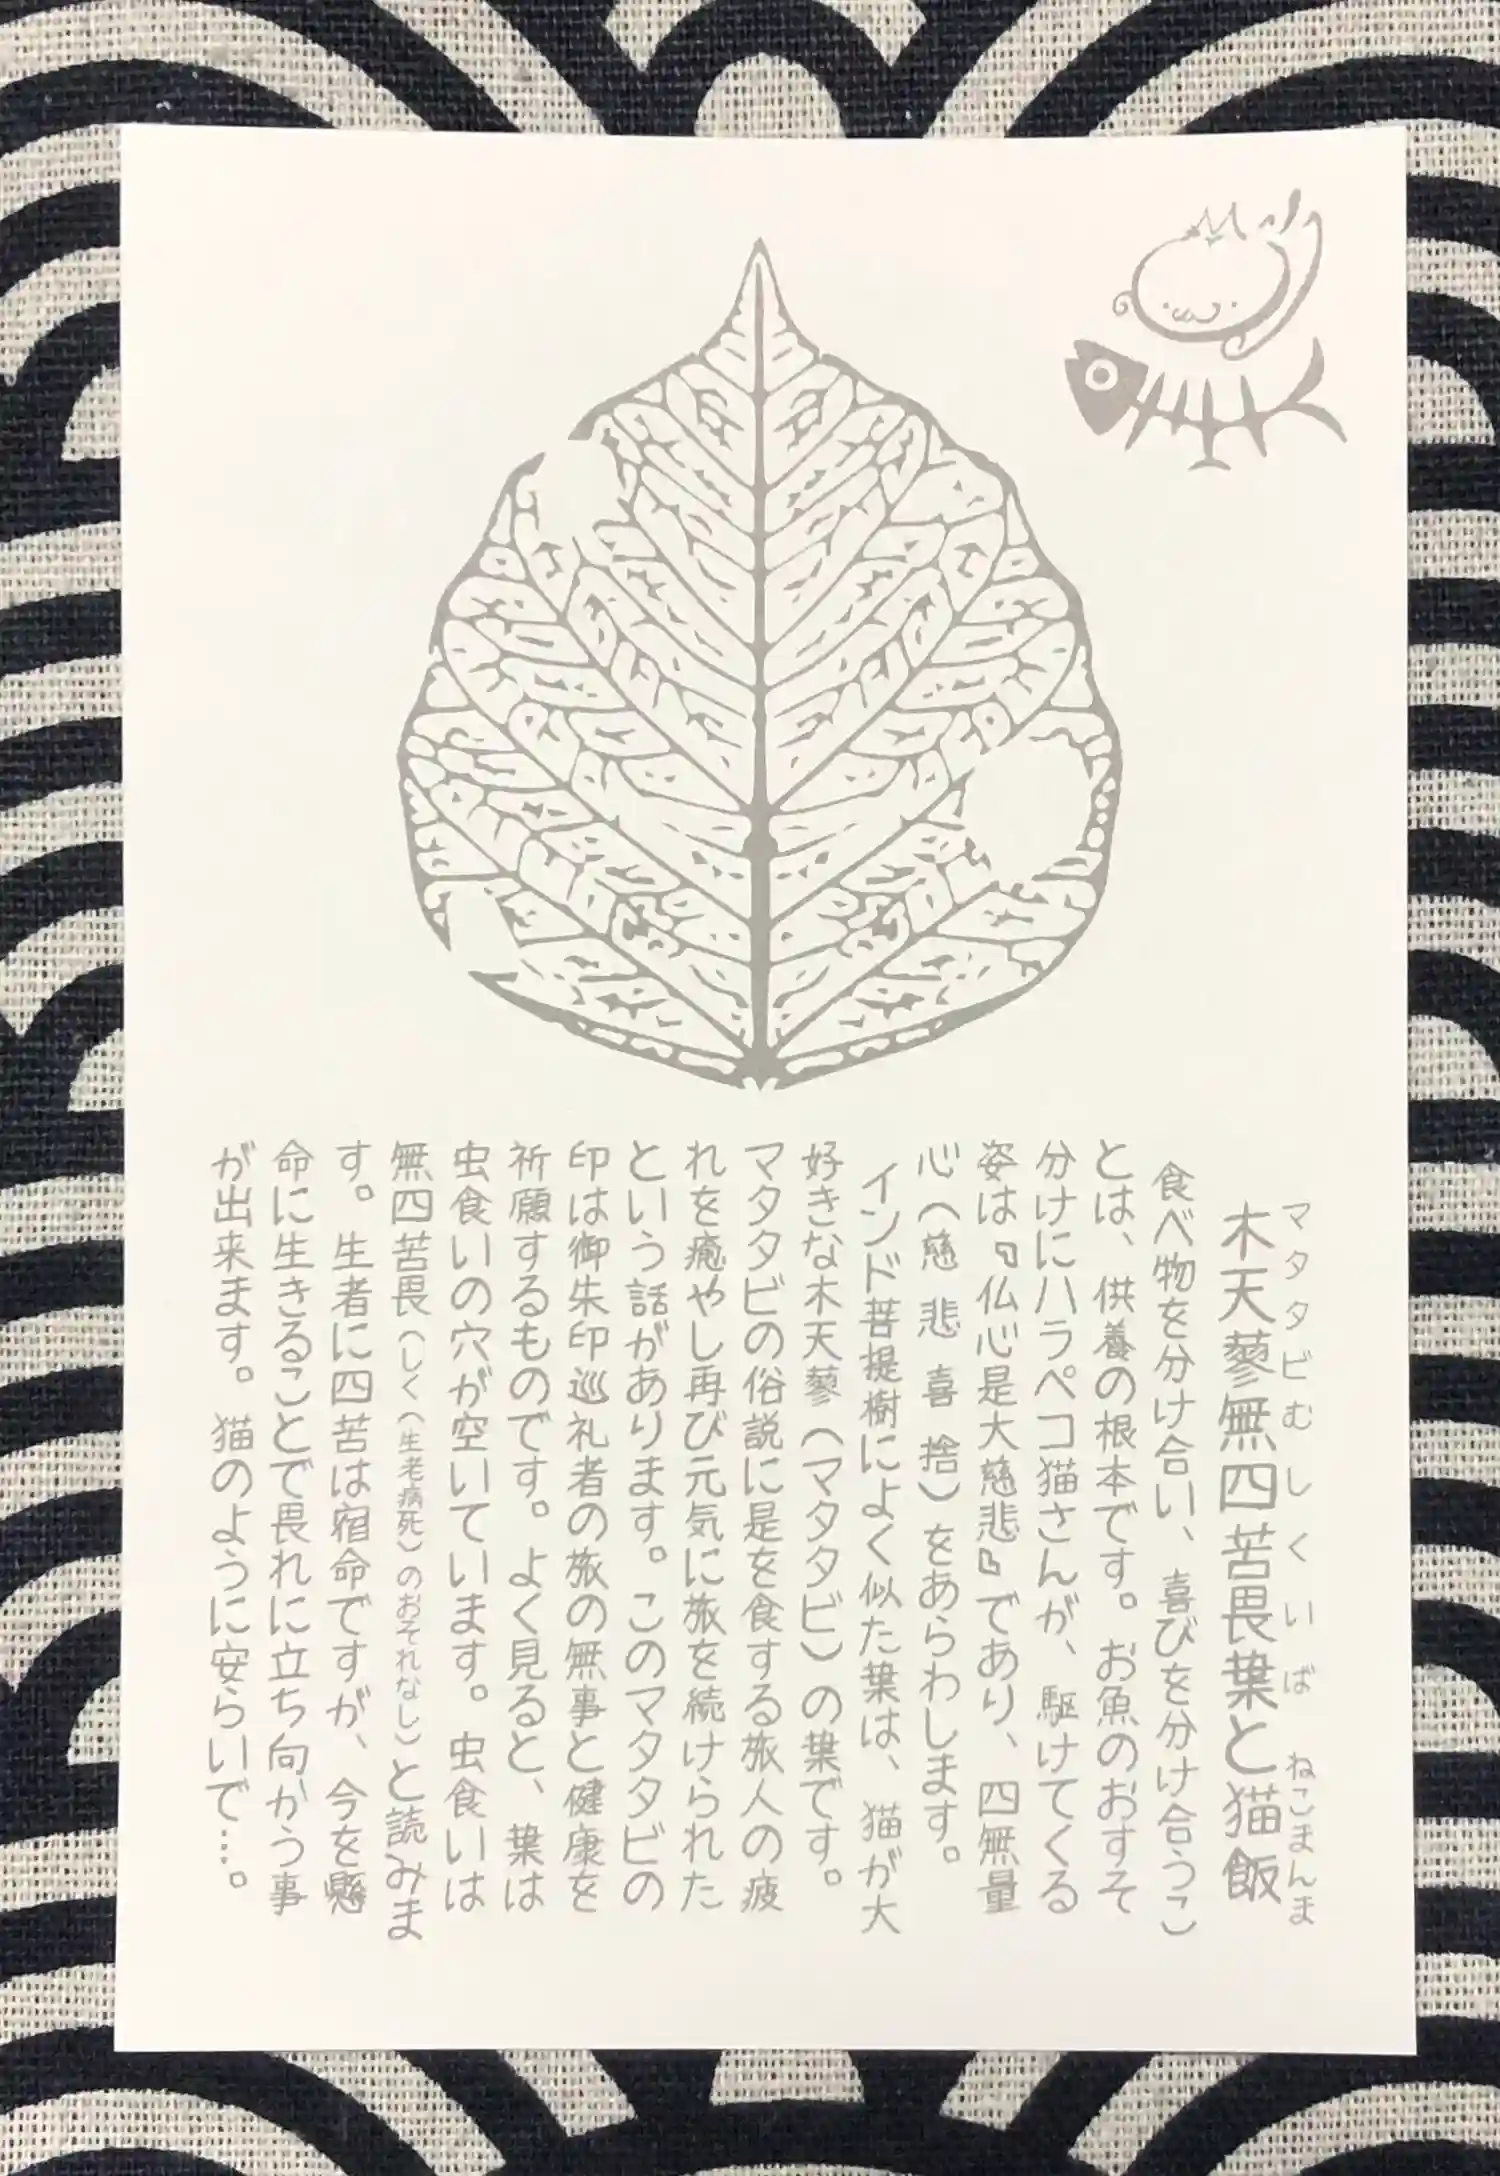 マタタビむしくいば ねこまんま
木天蓼無四苦畏葉と猫飯
食べ物を分け合い、喜びを分け合うこ
とは、供養の根本です。お魚のおすそ
分けにハラペコ猫さんが、駆けてくる
姿は『仏心是大慈悲』であり、四無量
心（慈 悲 喜 捨）をあらわします。
インド菩提樹によく似た葉は、猫が大
好きな木天蓼（マタタビ）の葉です。
マタタビの俗説に是を食する旅人の疲
れを癒やし再び元気に旅を続けられた
という話があります。このマタタビの
印は御朱印巡礼者の旅の無事と健康を
祈願するものです。よく見ると、葉は
虫食いの穴が空いています。虫食いは
無四苦畏（しく（生老病死）のおそれなし）と読みま
す。生者に四苦は宿命ですが、今を懸
命に生きることで畏れに立ち向かう事
が出来ます。猫のように安らいで…。